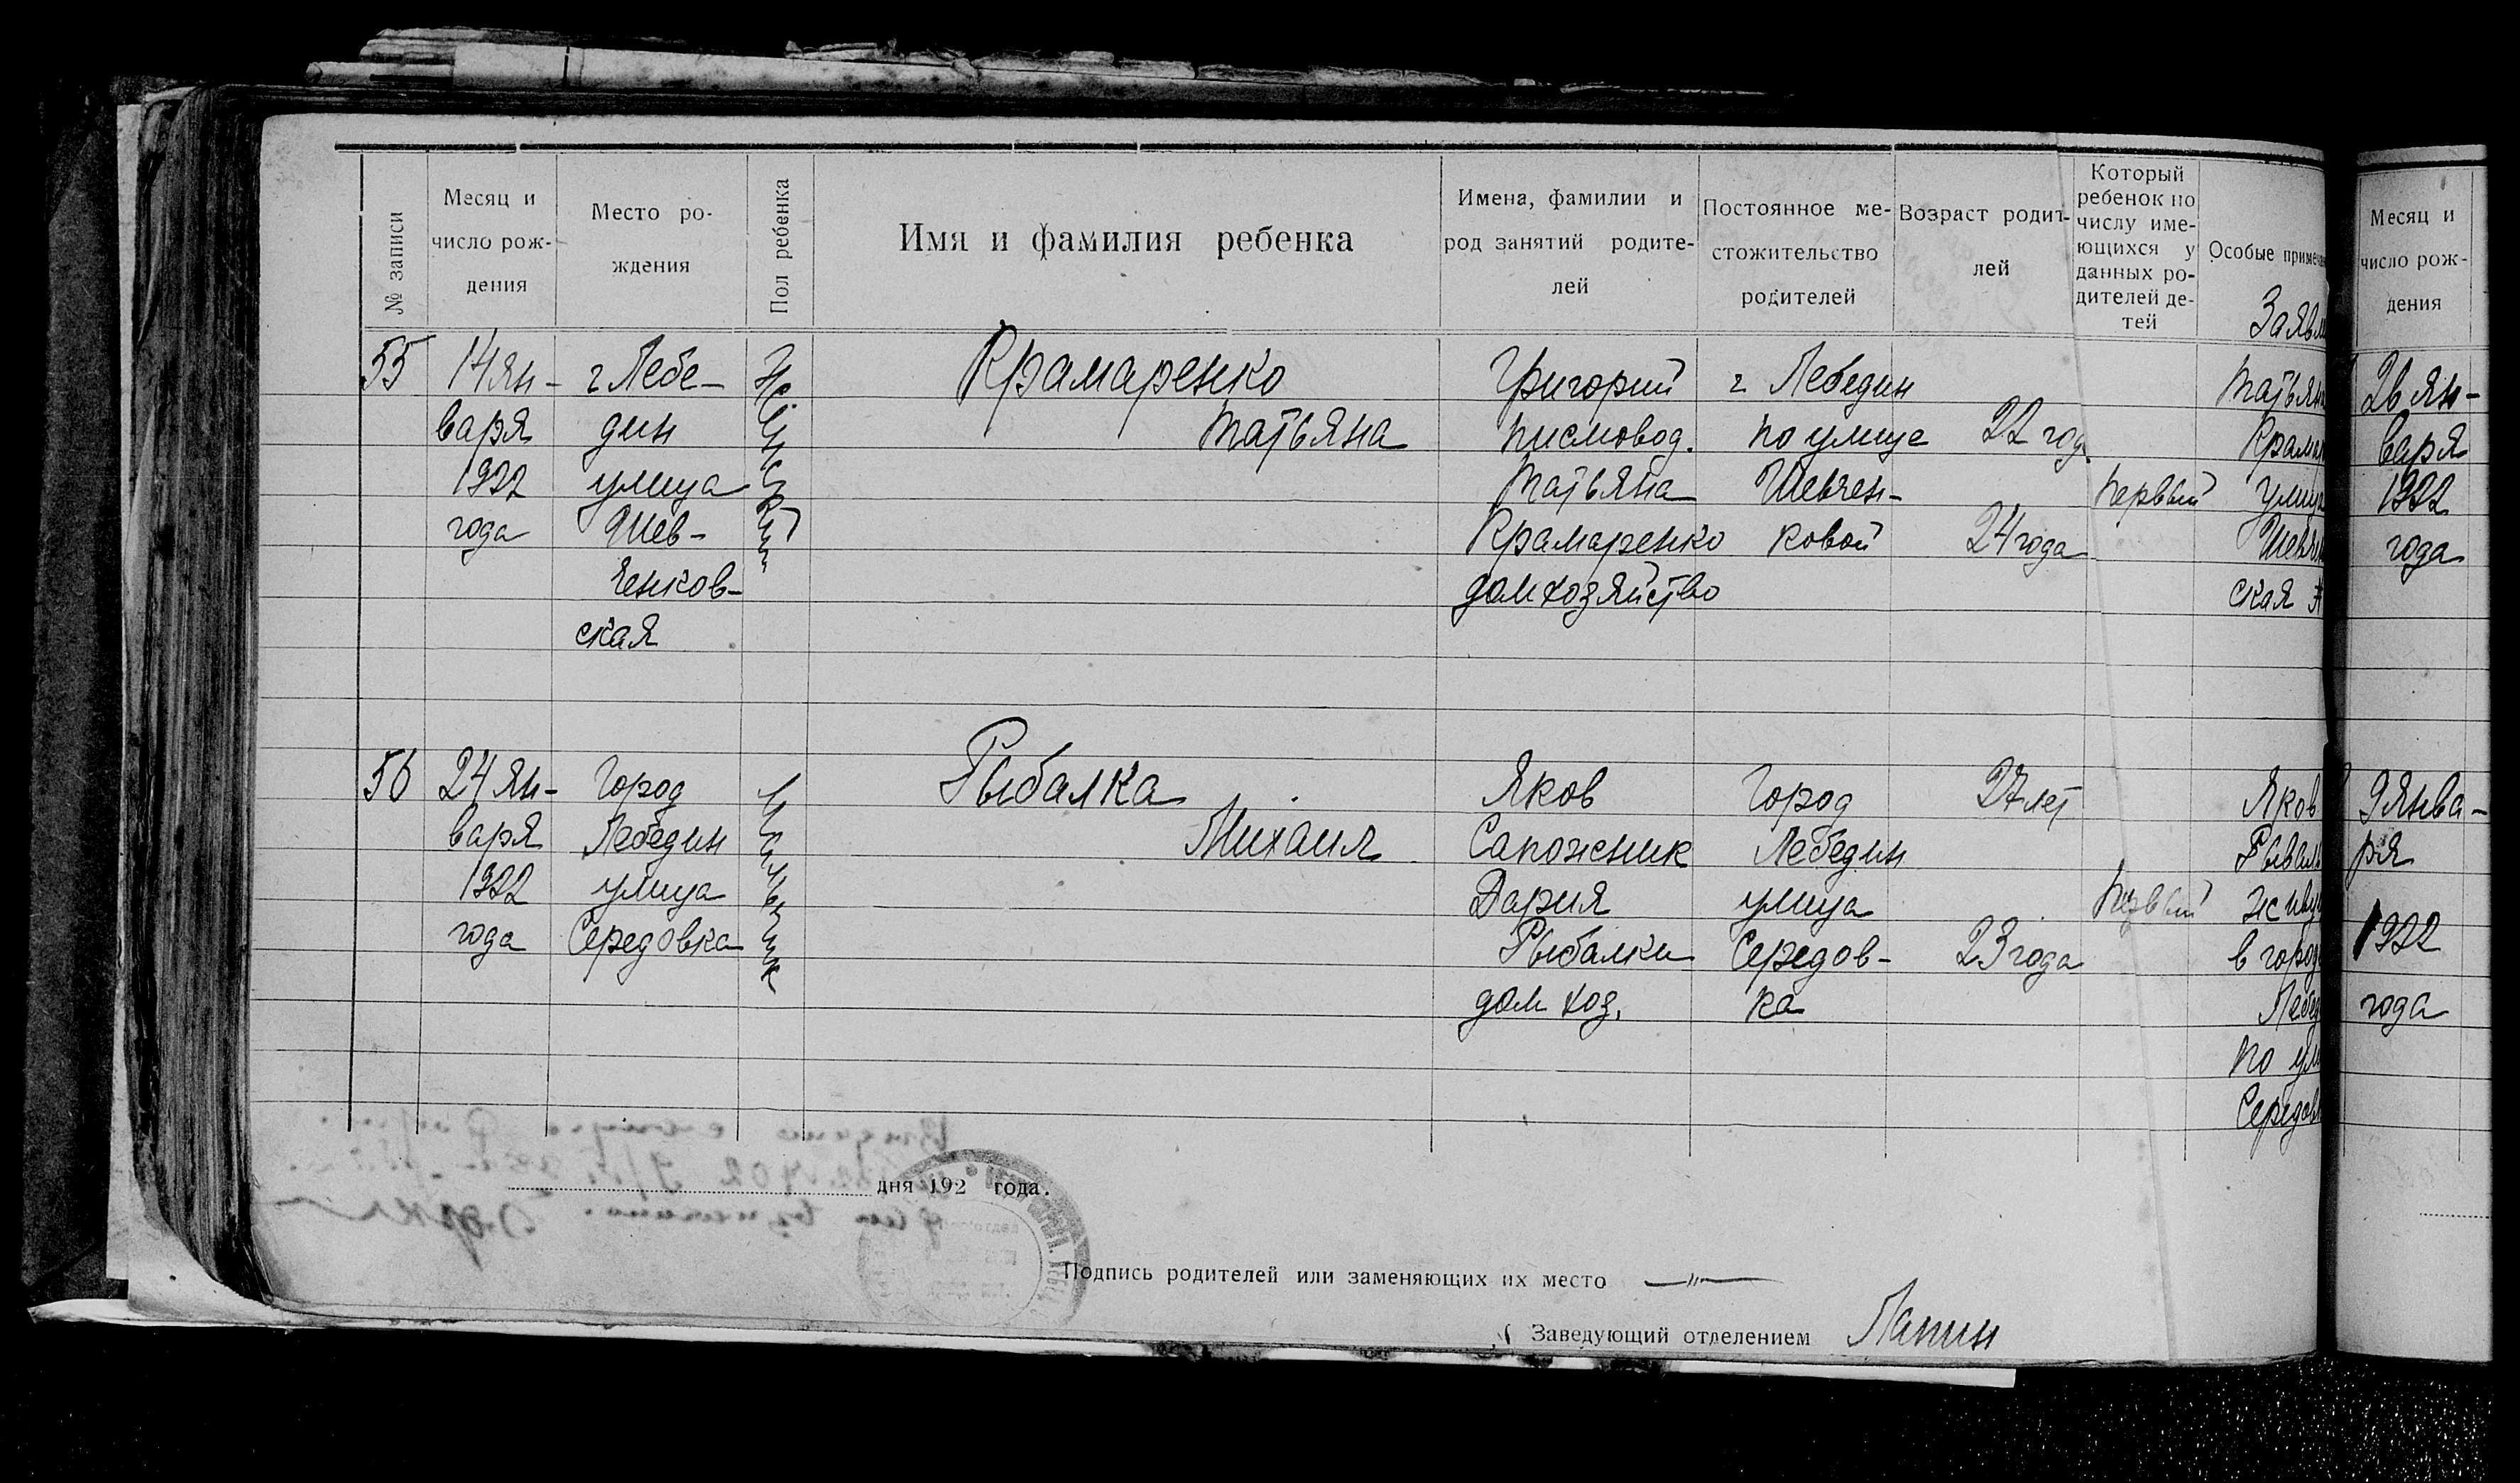 № записи
Месяц и
число рож-
дения
Место ро-
ждения
Пол ребенка
Имя и фамилия ребенка
Имена, фамилии и
род занятий родите-
лей
Постоянное ме-
стожительство
родителей
Возраст родит-
лей
Который
ребенок по
числу име-
ющихся у
данных ро-
дителей де-
тей
Особые примеча
Заявл
55
14 ян-
варя
1922
года
г Лебе-
дин
улица
Шев-
ченков-
ская
Женский
Крамаренко
Татьяна
Григорий
писмовод.
Татьяна
Крамаренко
домхозяйство
г Лебедин
по улице
Шевчен-
ковой
22 год.
24 года
первый
Татьян
Крама
улиц
Шевч
ская
56
24 ян-
варя
1922
года
Город
Лебедин
улица
Середовка
Мальчик
Рыбалка
Михаил
Яков
Сапожник
Дария
Рыбалки
дом хоз.
Город
Лебедин
улица
Середов-
ка
27 лет
23 года
первый
Яков
Рыбал
живу
в город
Лебед
по ул
Середов
дня 192 года.
Подпись родителей или заменяющих их место —"—
Заведующий отделением Лапин
Месяц и
число рож-
дения
26 ян-
варя
1922
года
9 янва-
ря
1922
года